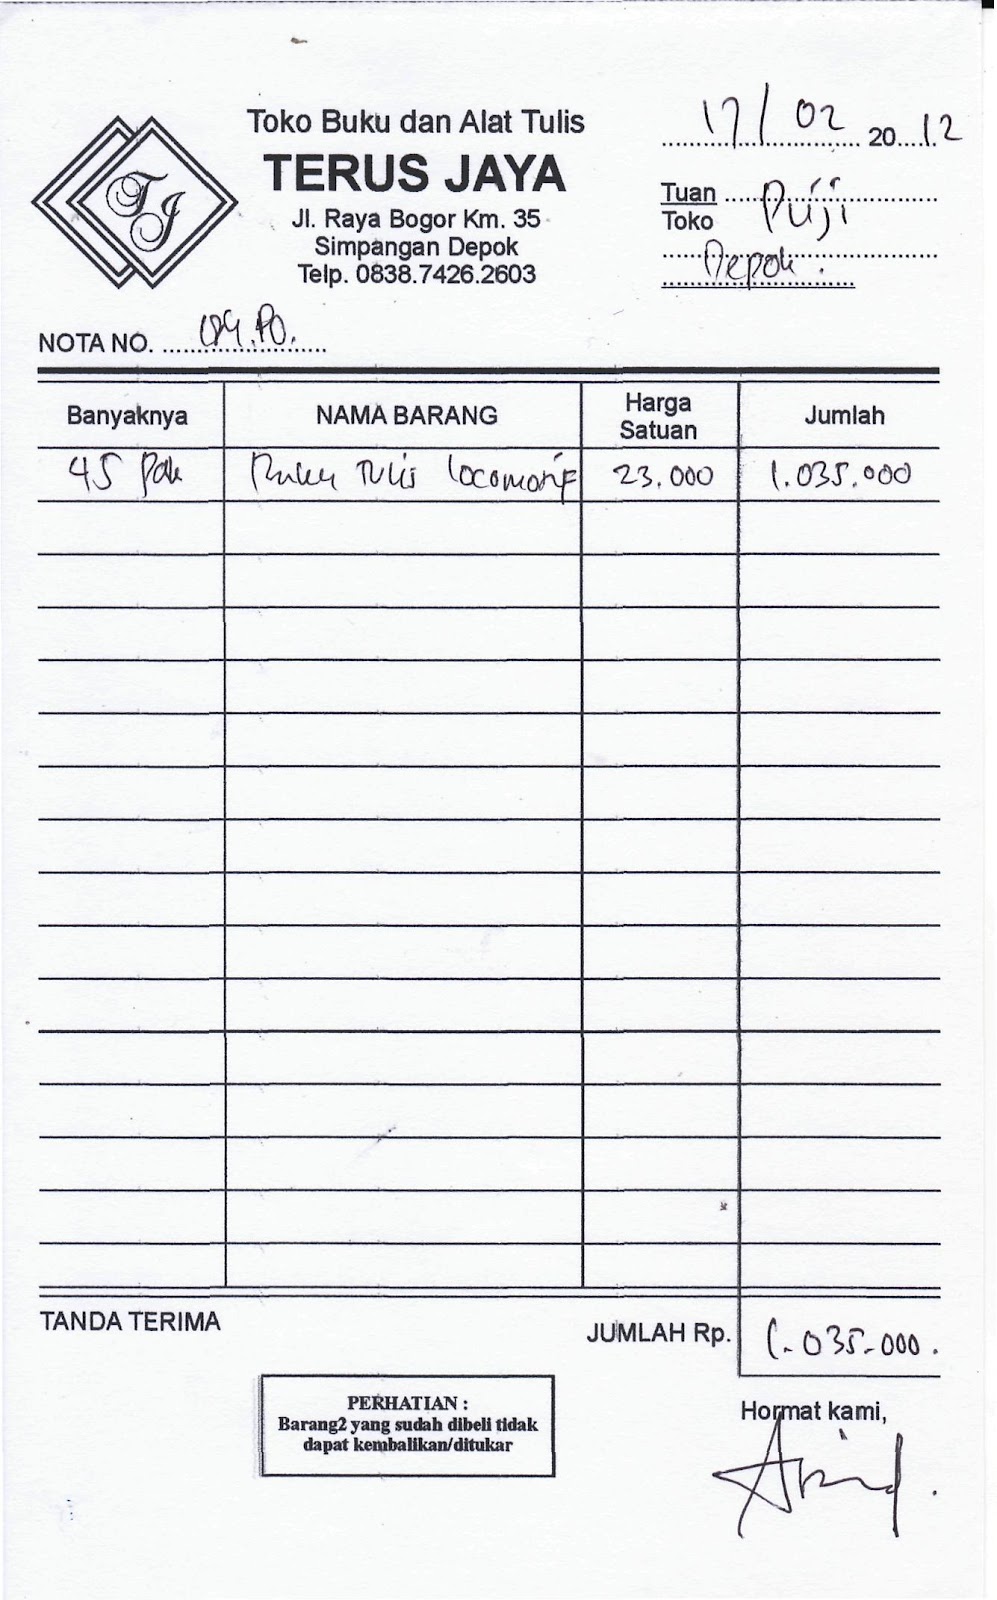 Toko Buku dan Alat Tulis
TERUS JAYA
Jl. Raya Bogor Km. 35
Simpangan Depok
Telp. 0838.7426.2603
TJ
17/02 2012
Tuan Puji
Toko
Depok.
NOTA NO.
Banyaknya NAMA BARANG Harga Satuan Jumlah
45 Pak Buku Tulis locomotif 23.000 1.035.000
TANDA TERIMA
JUMLAH Rp. 1.035.000.
PERHATIAN :
Barang2 yang sudah dibeli tidak
dapat kembalikan/ditukar
Hormat kami,